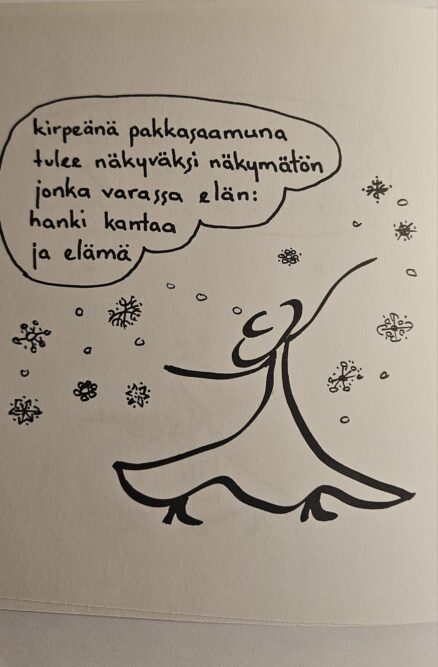 kirpeänä pakkasaamuna
tulee näkyväksi näkymätön
jonka varassa elän:
hanki kantaa
ja elämä